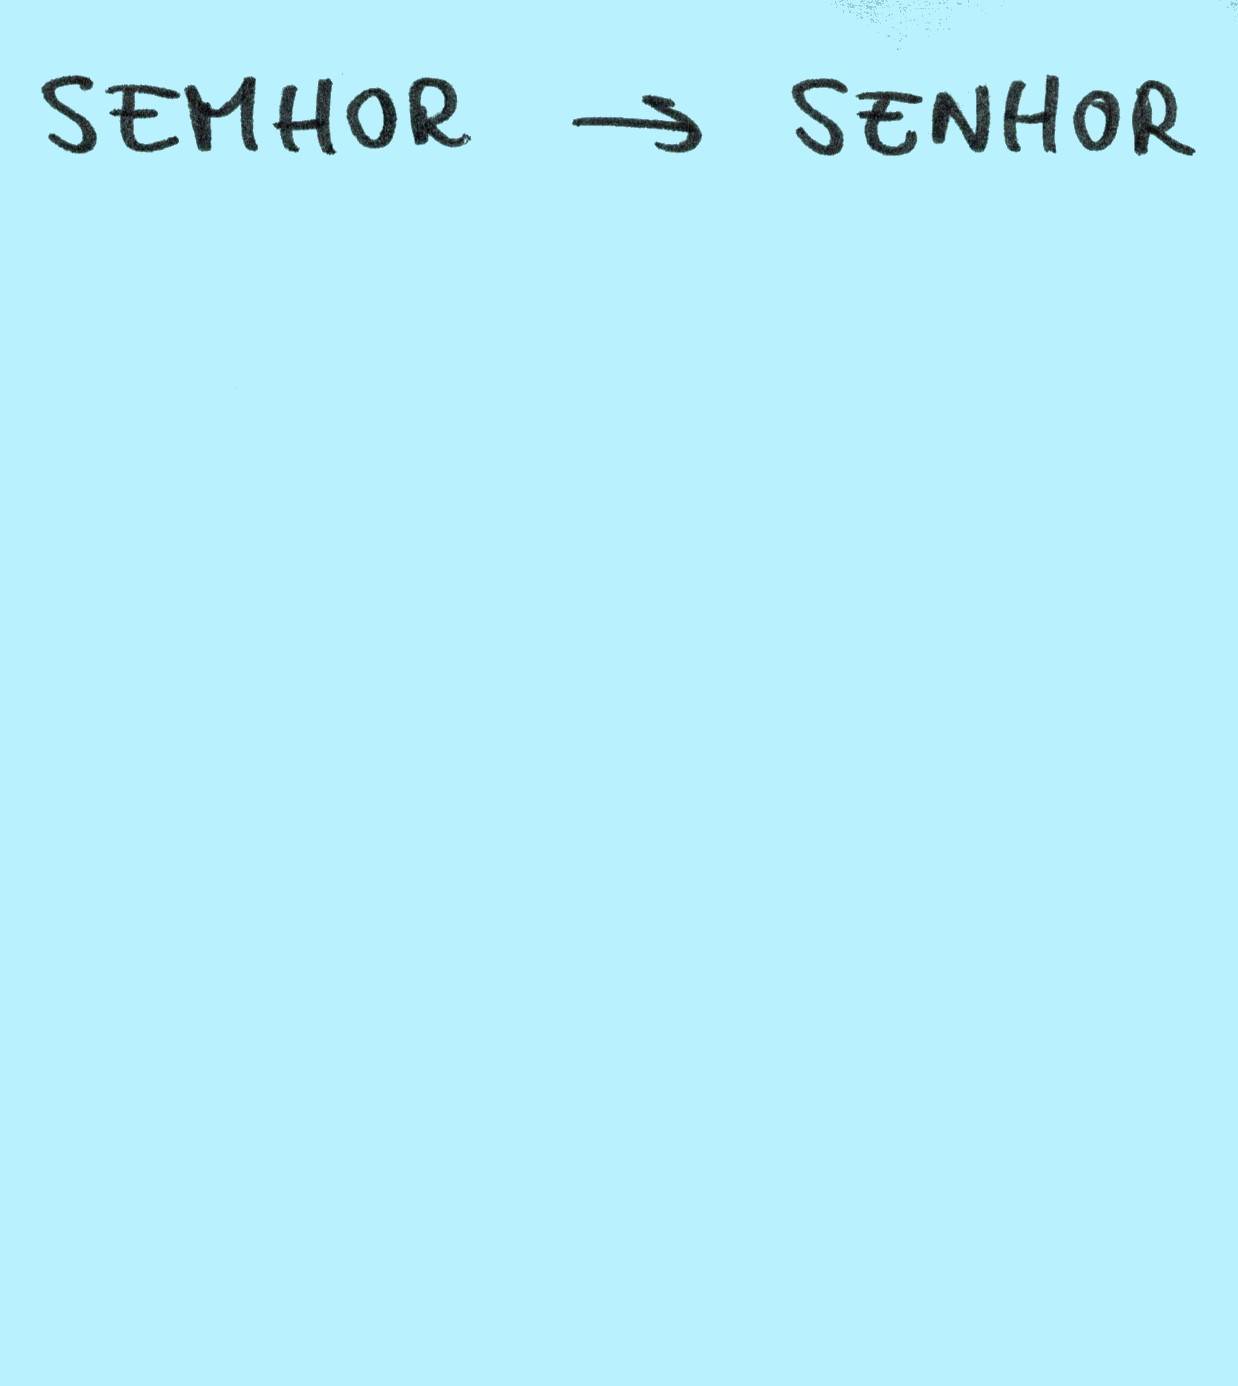 SEMHOR → SENHOR